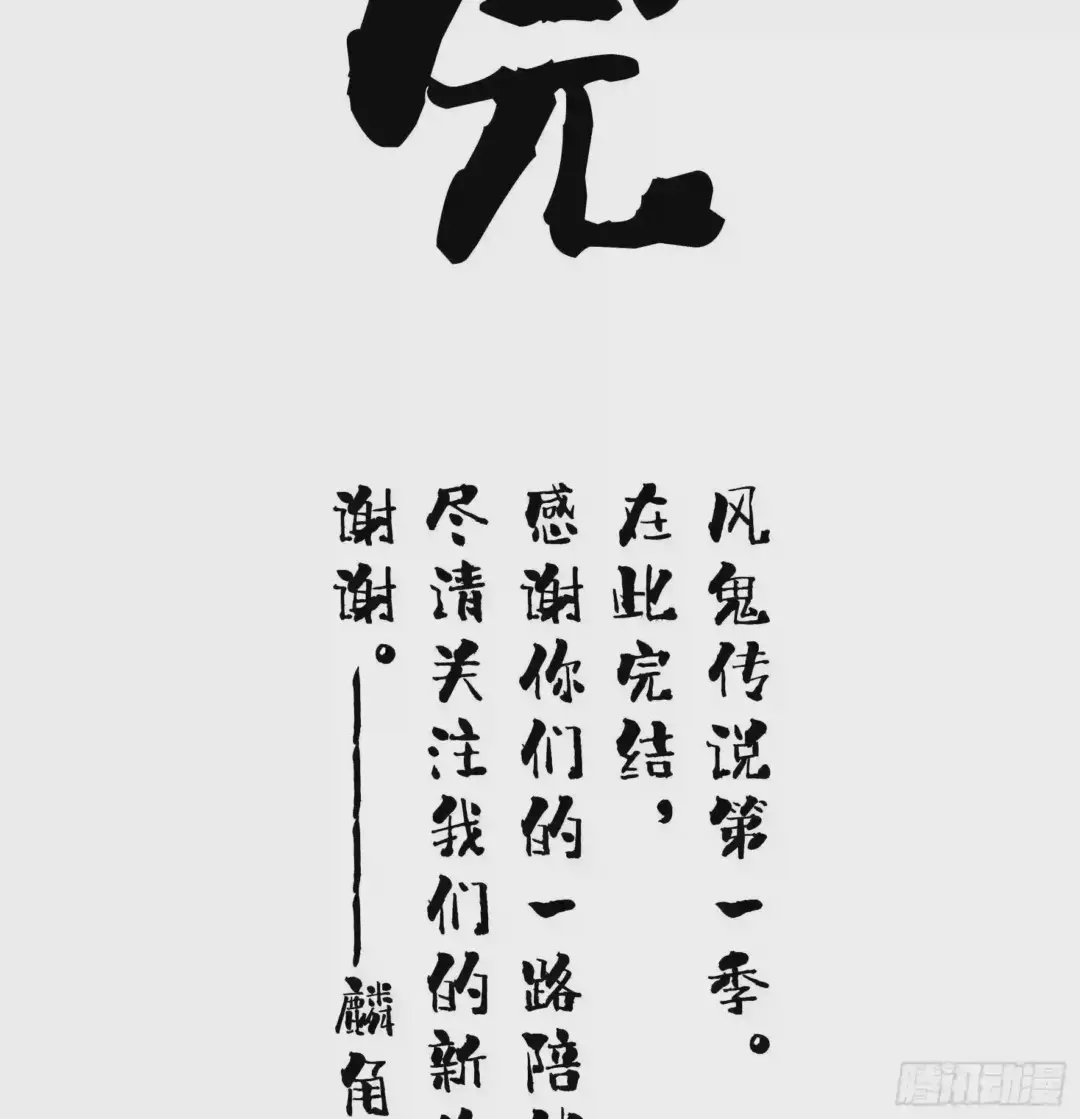 完
风鬼传说第一季。
在此完结，
感谢你们的一路陪
尽请关注我们的新
谢谢。——麟角
腾讯动漫